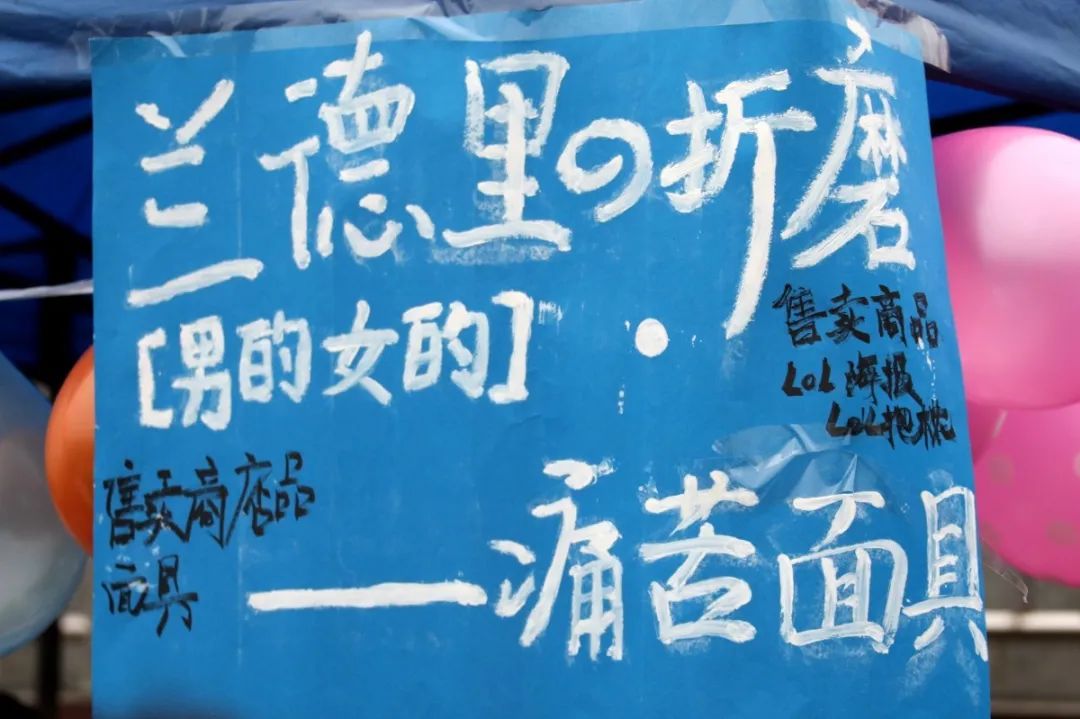 兰德里の折磨
[男的女的]
售卖商品
LOL海报
LOL抱枕
售卖商店品
面具
——痛苦面具